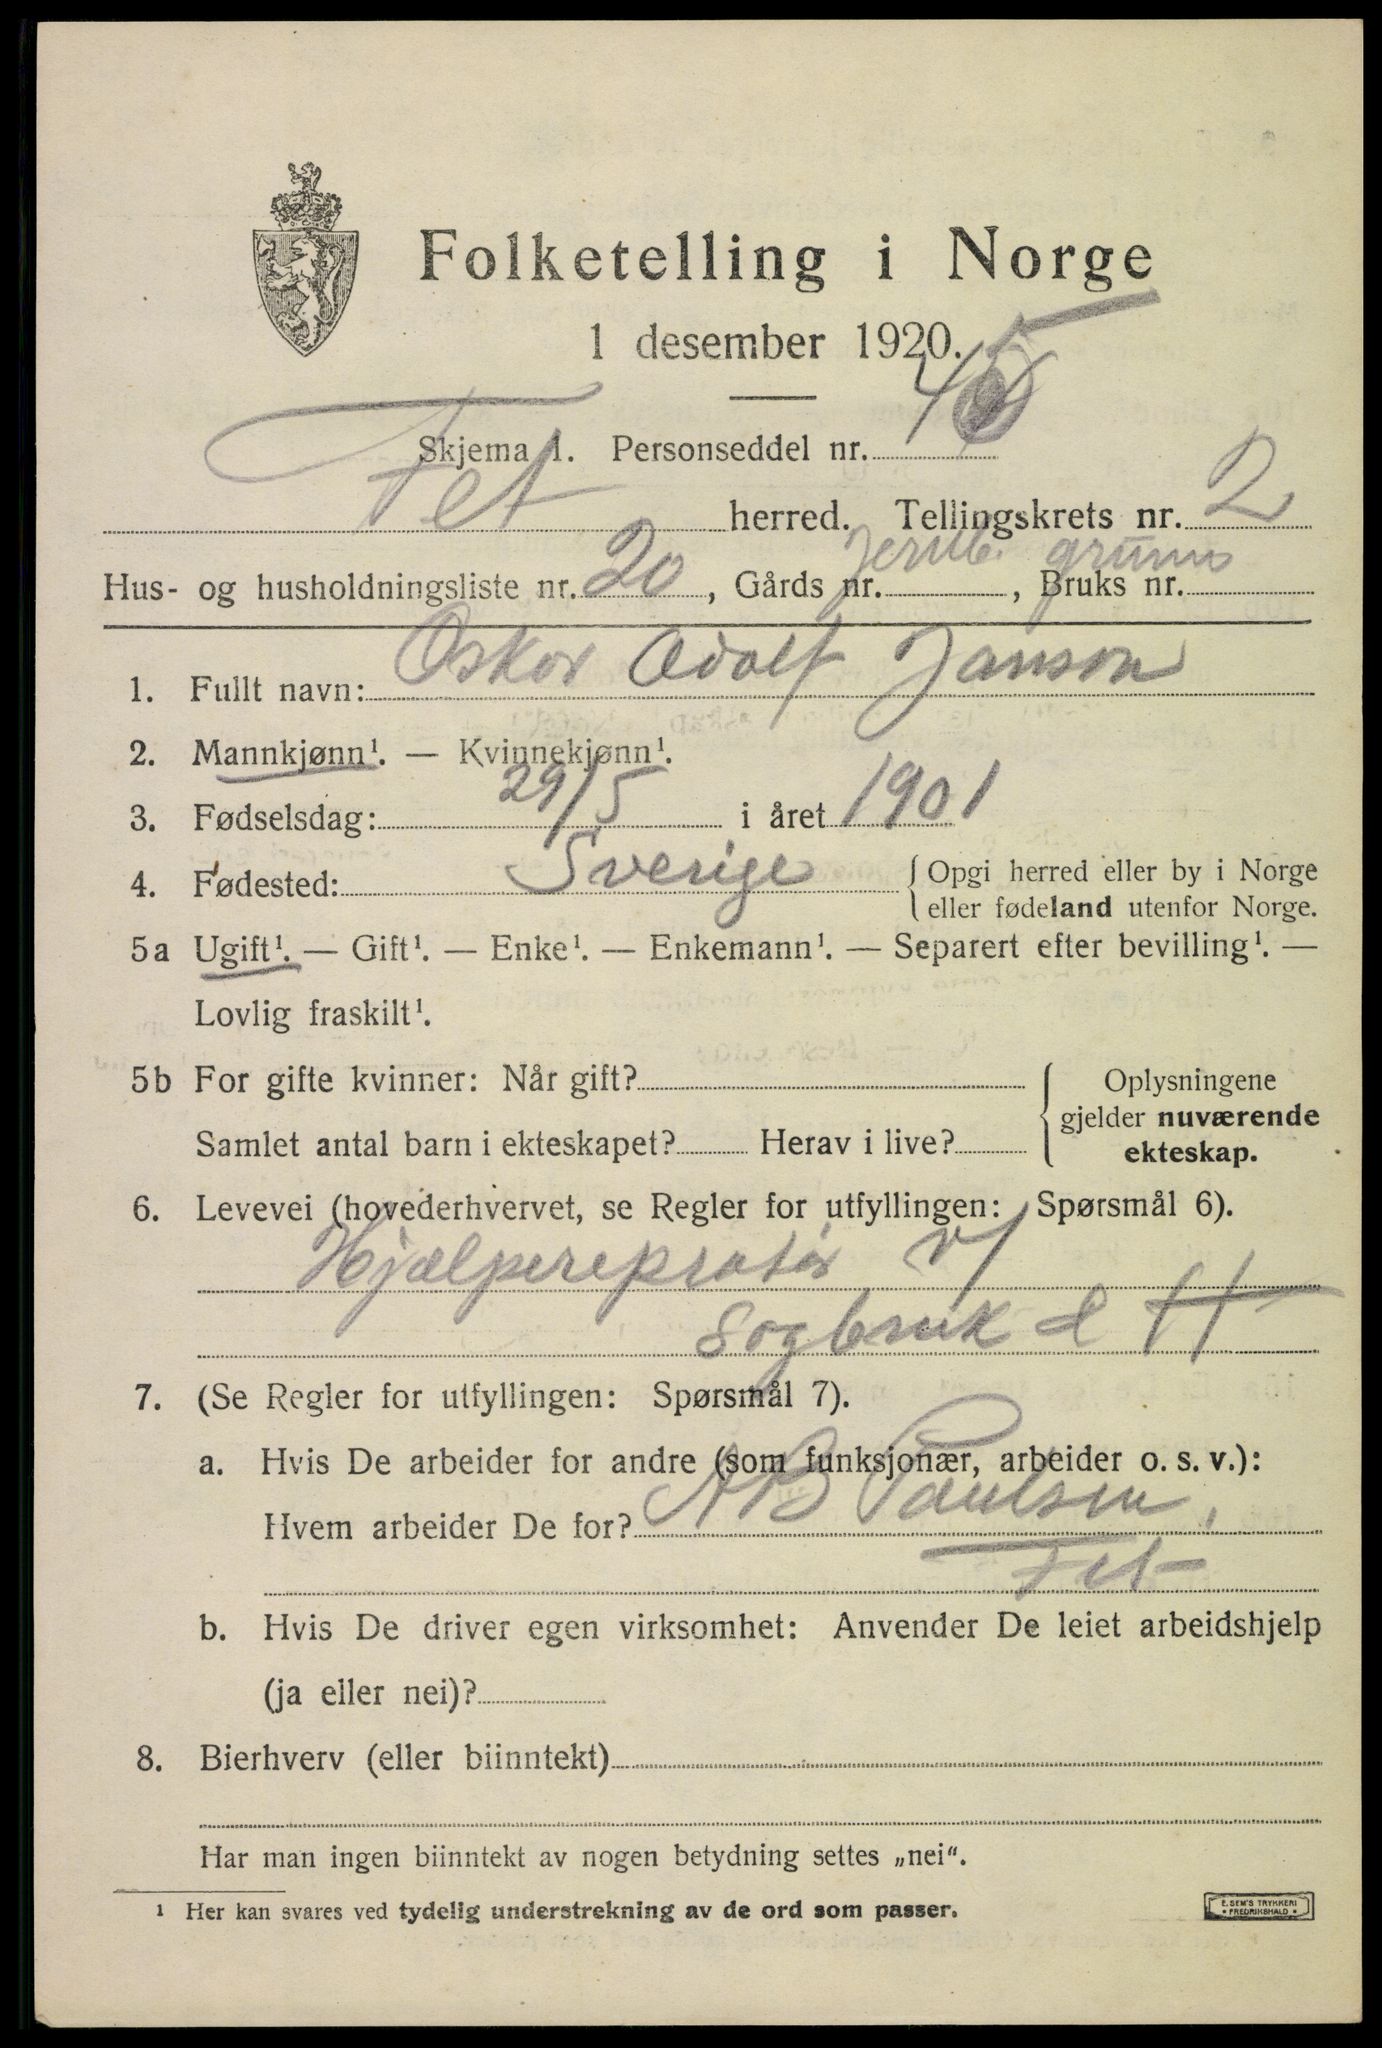 Folketelling i Norge
1 desember 1920.
Skjema 1. Personseddel nr. 45
Fet herred. Tellingskrets nr. 2
Jernb. grunn
Hus- og husholdningsliste nr. 20, Gårds nr. , Bruks nr.
1. Fullt navn: Oskar Adolf Janson
2. Mannkjønn¹. — Kvinnekjønn¹.
3. Fødselsdag: 29/5 i året 1901
4. Fødested: Sverige { Opgi herred eller by i Norge
eller fødeland utenfor Norge.
5a Ugift¹. — Gift¹. — Enke¹. — Enkemann¹. — Separert efter bevilling¹. —
Lovlig fraskilt¹.
5b For gifte kvinner: Når gift? { Oplysningene
gjelder nuværende
Samlet antal barn i ekteskapet? Herav i live? ekteskap.
6. Levevei (hovederhvervet, se Regler for utfyllingen: Spørsmål 6).
Hjælperepratør v/
Sagbruk
7. (Se Regler for utfyllingen: Spørsmål 7).
a. Hvis De arbeider for andre (som funksjonær, arbeider o. s. v.):
Hvem arbeider De for? AB Paulsen,
Fet
b. Hvis De driver egen virksomhet: Anvender De leiet arbeidshjelp
(ja eller nei)?
8. Bierhverv (eller biinntekt)
Har man ingen biinntekt av nogen betydning settes „nei“.
¹ Her kan svares ved tydelig understrekning av de ord som passer.
E. SEM'S TRYKKERI
* FREDRIKSHALD *